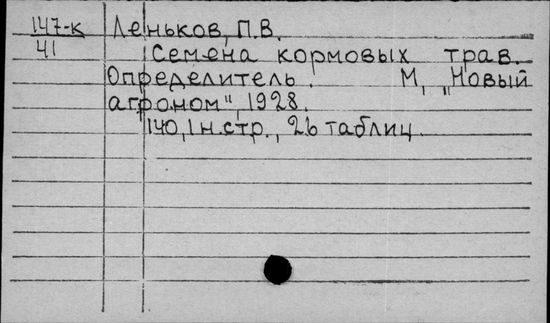 147-к Леньков, П.В.
41 Семена кормовых трав.
Определитель. М, „Новый
агроном", 1928.
140, 1 н.стр., 26 таблиц